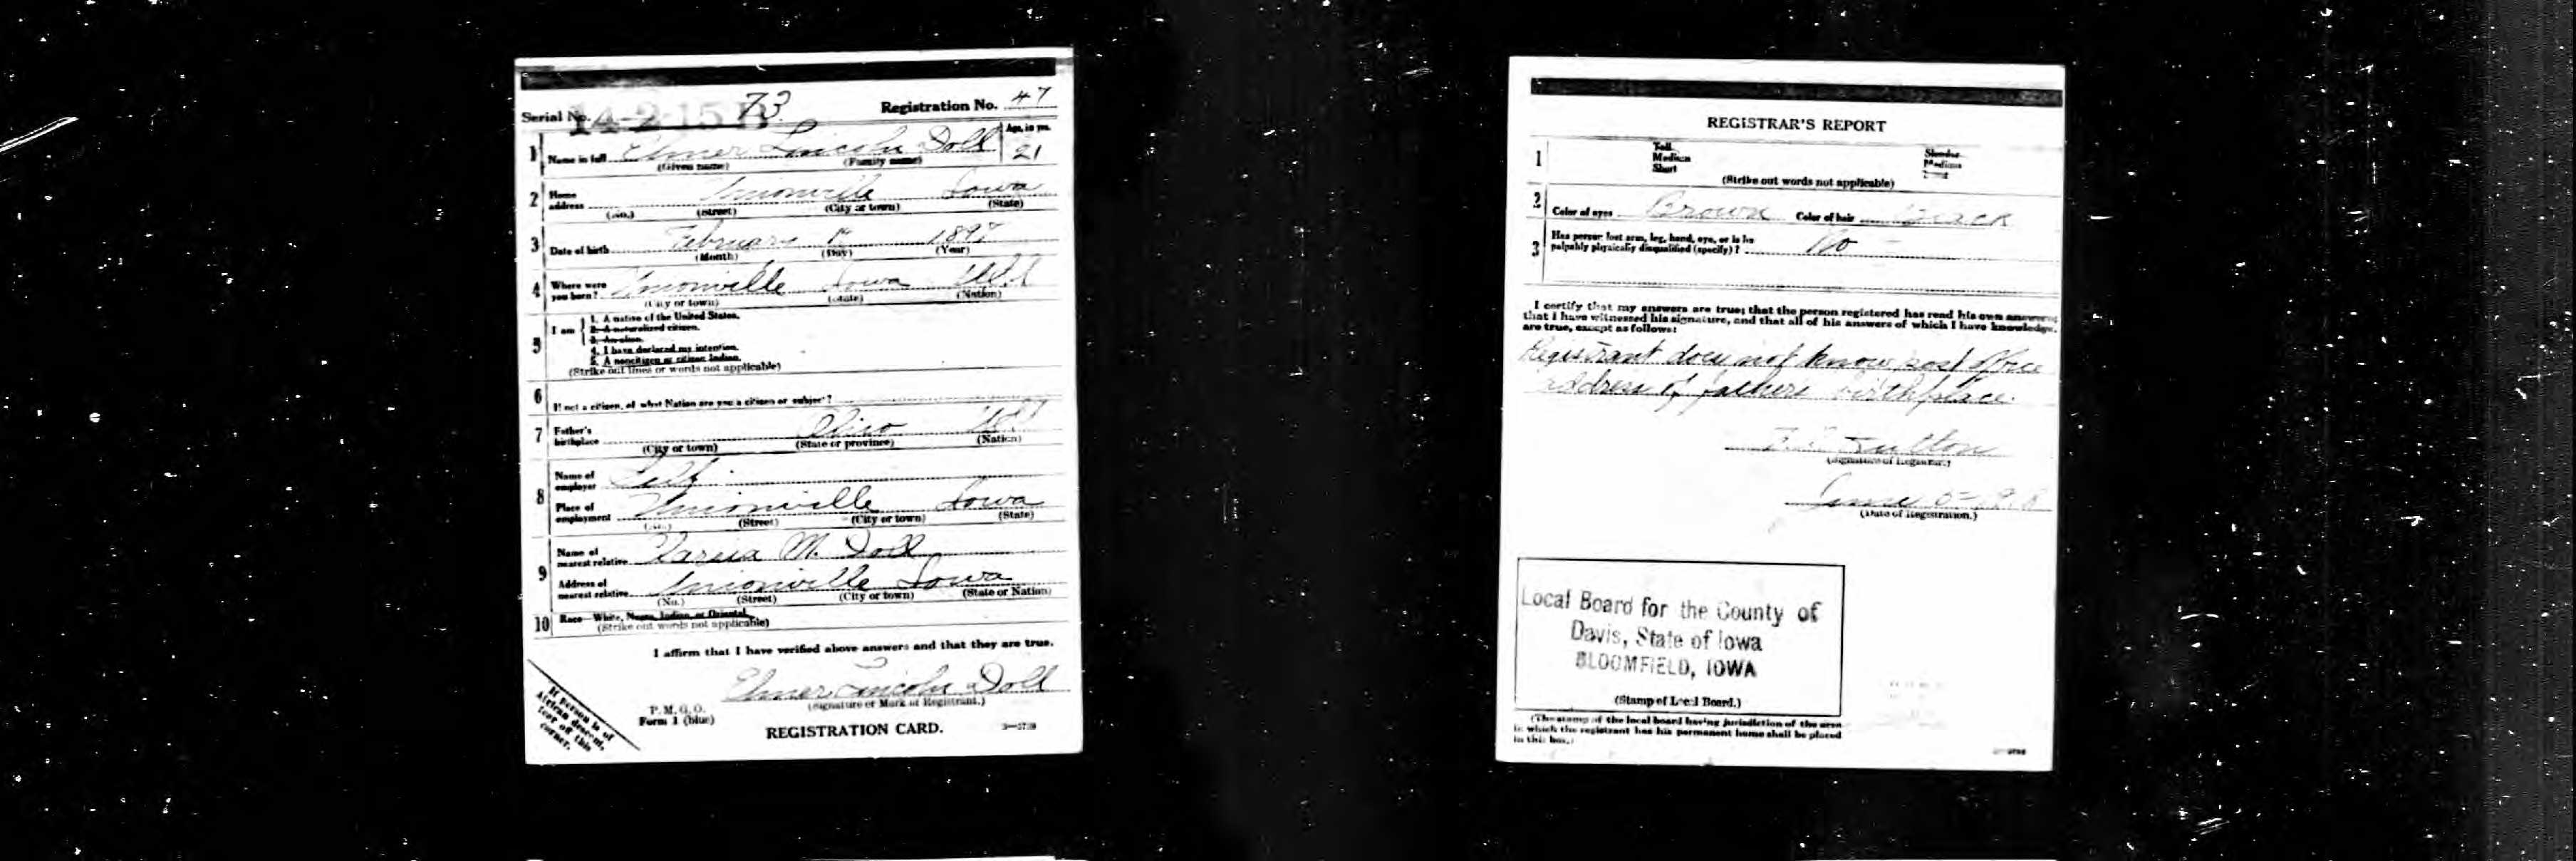 Serial No. 73 Registration No. 47
14-2-15 B
1 Name in full Elmer Lincoln Doll Age, in yrs. 21
(Given name) (Family name)
2 Home address Unionville Iowa
(No.) (Street) (City or town) (State)
3 Date of birth February 189
(Month) (Day) (Year)
4 Where were you born? Unionville Iowa USA
(City or town) (State) (Nation)
5 I am
1. A native of the United States.
2. A naturalized citizen.
3. An alien.
4. I have declared my intention.
5. A noncitizen or citizen Indian.
(Strike out lines or words not applicable)
6 If not a citizen, of what Nation are you a citizen or subject?
7 Father's birthplace Ohio USA
(City or town) (State or province) (Nation)
8 Name of employer Self
Place of employment Unionville Iowa
(No.) (Street) (City or town) (State)
9 Name of nearest relative M. Doll
Address of nearest relative Unionville Iowa
(No.) (Street) (City or town) (State or Nation)
10 Race—White, Negro, Indian, or Oriental.
(Strike out words not applicable)
I affirm that I have verified above answers and that they are true.
Elmer Lincoln Doll
(Signature or Mark of Registrant.)
P. M. G. O.
Form 1 (blue)
REGISTRATION CARD.
If person is of
African descent,
tear off this
corner.
REGISTRAR'S REPORT
1 Tall Slender
Medium Medium
Short Stout
(Strike out words not applicable)
2 Color of eyes Brown Color of hair Black
3 Has person lost arm, leg, hand, eye, or is he
palpably physically disqualified (specify)? No
I certify that my answers are true; that the person registered has read his own answers;
that I have witnessed his signature, and that all of his answers of which I have knowledge
are true, except as follows:
Registrant does not know post office
address of fathers birthplace.
Fulton
(Signature of Registrar.)
June 5-1918
(Date of Registration.)
Local Board for the County of
Davis, State of Iowa
BLOOMFIELD, IOWA
(Stamp of Local Board.)
(The stamp of the local board having jurisdiction of the area
in which the registrant has his permanent home shall be placed
in this box.)